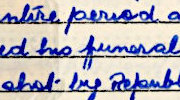 entire period a
ed his funeral
shot by Republ